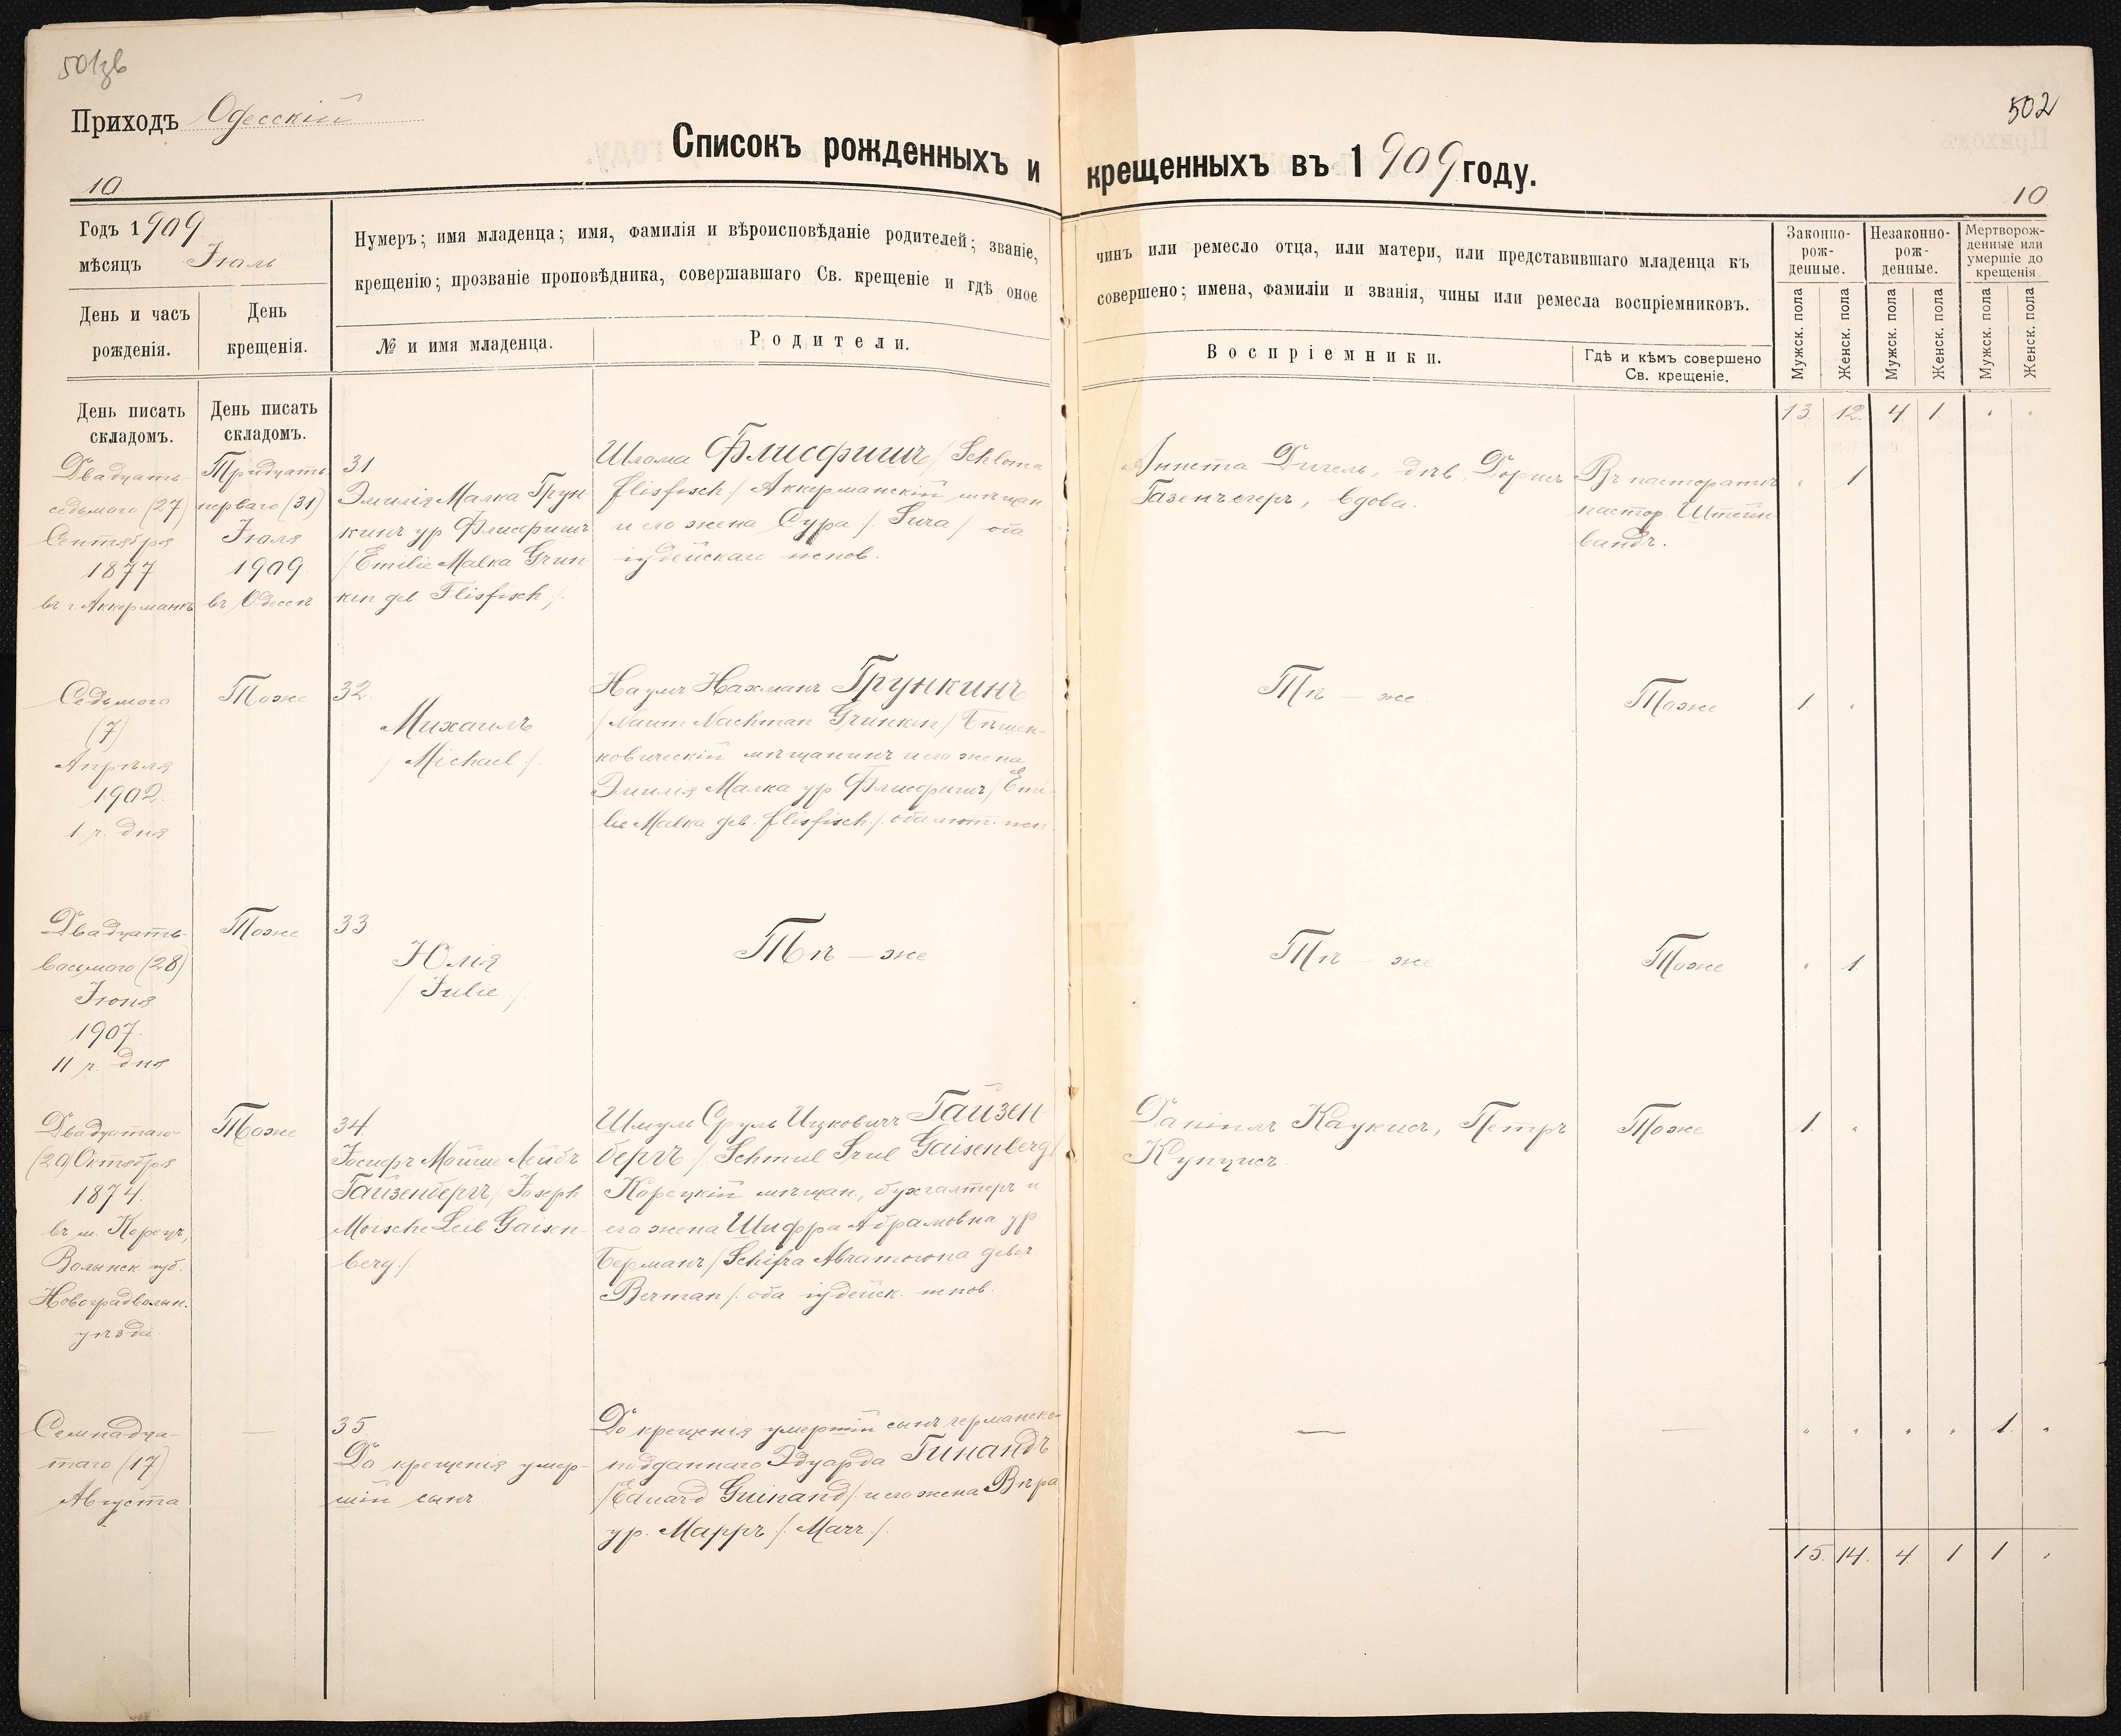 501зв
502
Приходъ Одесскій
Списокъ рожденныхъ и крещенныхъ въ 1909 году.
10
10
Годъ 1909
мѣсяцъ Іюль
День и часъ рожденія.
День крещенія.
Нумеръ; имя младенца; имя, фамилія и вѣроисповѣданіе родителей; званіе, чинъ или ремесло отца, или матери, или представившаго младенца къ
крещенію; прозваніе проповѣдника, совершавшаго Св. крещеніе и гдѣ оное совершено; имена, фамиліи и званія, чины или ремесла воспріемниковъ.
№ и имя младенца.
Родители.
Воспріемники.
Гдѣ и кѣмъ совершено
Св. крещеніе.
Законно-
рож-
денные.
Незаконно-
рож-
денные.
Мертворож-
денные или
умершіе до
крещенія
Мужск. пола
Женск. пола
Мужск. пола
Женск. пола
Мужск. пола
Женск. пола
День писать
складомъ.
День писать
складомъ.
13 12 4 1 " "
Двадцать
седьмого (27)
Сентября
1877
въ г. Аккерманѣ
Тридцать
перваго (31)
Іюля
1909
въ Одессѣ
31
Эмилія Малка Грун-
кинъ ур Флисфишъ
/Emilie Malka Grun
kin geb Flisfisch/.
Шлома Флисфишъ /Schloma
flisfisch./ Аккерманскій мѣщан
и его жена Сура /Sura/ оба
іудейскаго испов.
Аннета Дигель, дѣв. Дорисъ
Газенъегеръ, вдова.
Въ пасторатѣ
пастор. Штейн-
вандъ.
" 1
Седьмого
(7)
Апрѣля
1902.
1 ч. дня
Тоже
32.
Михаилъ
/Michael/.
Наумъ Нахманъ Грункинъ
/Naum Nachman Grunkin/ Бѣшен-
ковическій мѣщанинъ и его жена
Эмилія Малка ур. Флисфишъ /Emi-
lie Malka geb. flisfisch./. оба лют. исп
Тѣ – же.
Тоже
1 "
Двадцать-
восьмого (28)
Іюня
1907.
11 ч. дня
Тоже
33.
Юлія
/Julie/.
Тѣ – же
Тѣ – же.
Тоже
" 1.
Двадцатаго
(20) Октября
1874.
въ м. Корецъ,
Волынск губ.
Новоградволын.
уѣзда
Тоже
34.
Іосифъ Мойше Лейбъ
Гайзенбергъ /Joseph
Moische Leib Gaisen-
berg/
Шмуль Сруль Ицковичъ Гайзен-
бергъ /. Schmul Srul Gaisenberg/
Корецкій мѣщан, бухгалтеръ и
его жена Шифра Абрамовна ур.
Берманъ /Schifra Abramowna gebor
Berman/. оба іудейск. испов.
Даніилъ Каукисъ, Петръ
Купцисъ.
Тоже
1. "
Семнадца-
таго (17)
Августа
—
35.
До крещенія умер-
шій сынъ
До крещенія умершій сынъ германско-
подданнаго Эдуарда Гинандъ
/Eduard Guinand/. и его жена Вѣра
ур. Марръ /. Marr./.
—
—
" " " " 1. "
15. 14. 4. 1 1 "